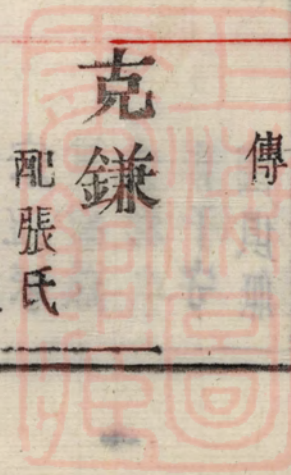 傳
克鎌
配張氏